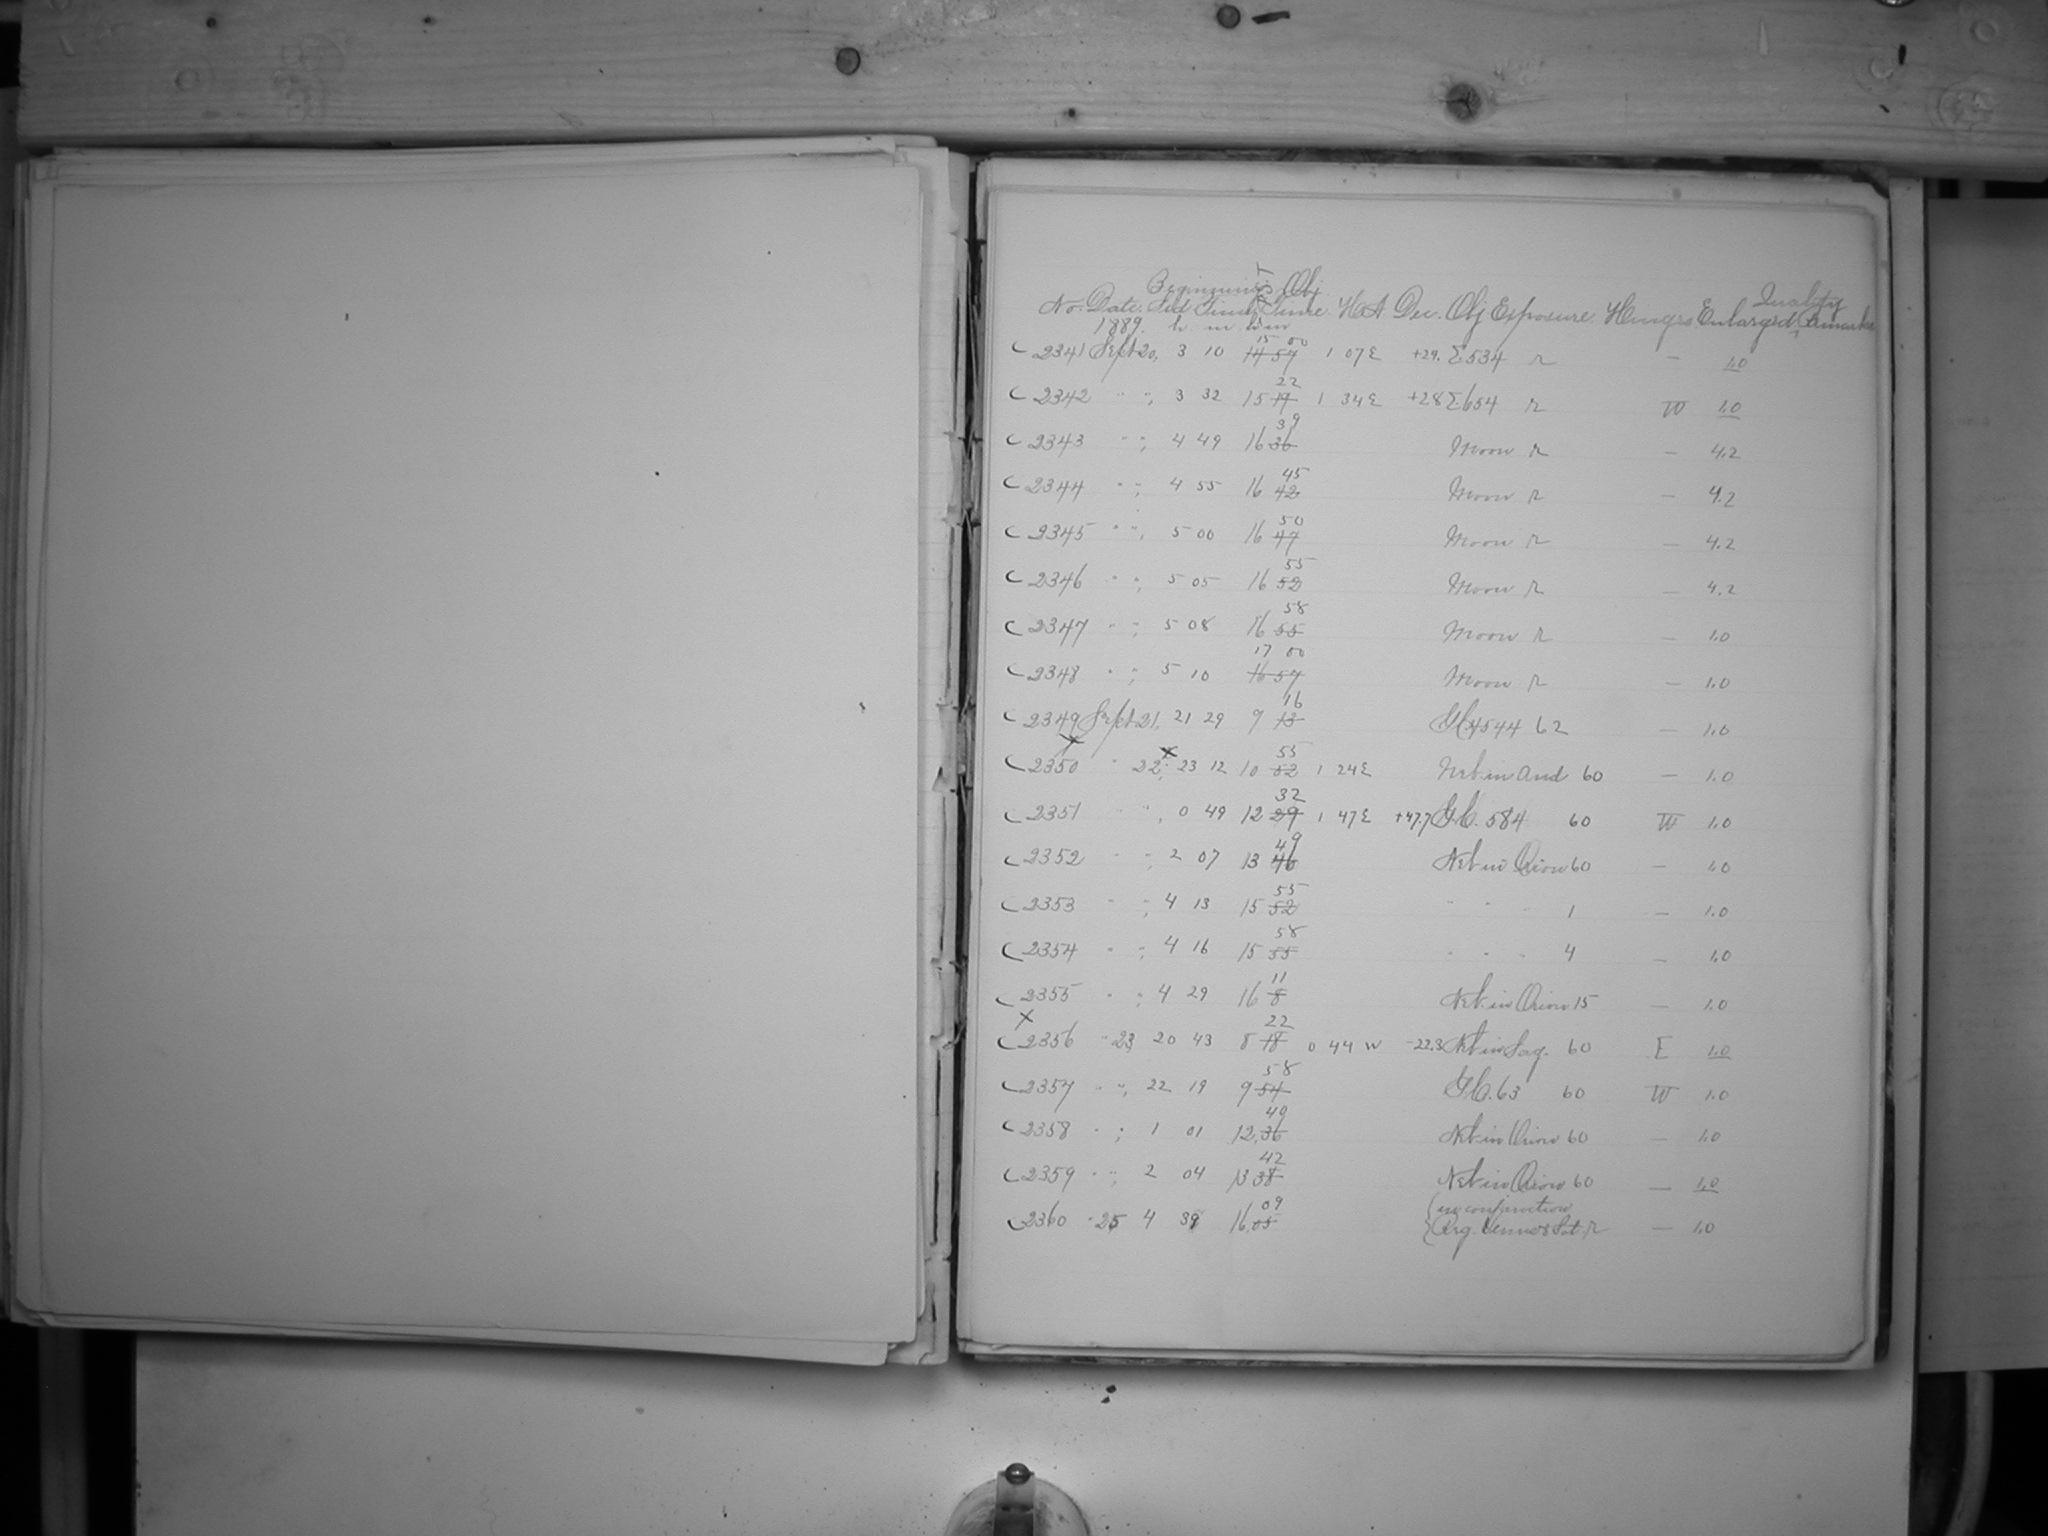 Beginning Obj Quality
No. Date. Sid Time. Time. H.A Dec. Obj Exposure. Enlarged, Remarks
1889. h. m. h. m
15 00
C 2341 Sept 20, 3 10 14 57 1 07 E +29. Σ534 r - 1.0
22
C 2342 " ", 3 32 15 19 1 34 E +28 Σ654 r W 1.0
39
C 2343 " ", 4 49 16 36 Moon r - 4.2
45
C 2344 " ", 4 55 16 42 Moon r - 4.2
50
C 2345 " ", 5 00 16 47 Moon r - 4.2
55
C 2346 " ", 5 05 16 52 Moon r - 4.2
58
C 2347 " ", 5 08 16 55 Moon r - 1.0
17 00
C 2348 " ", 5 10 16 57 Moon r - 1.0
16
C 2349 Sept 21, 21 29 9 13 G.C. 4544 62 - 1.0
x x 55
C 2350 " 22, 23 12 10 52 1 24 E Neb in And 60 - 1.0
32
C 2351 " ", 0 49 12 29 1 47 E +47.7 G.C. 584 60 W 1.0
49
C 2352 " ", 2 07 13 46 Neb in Orion 60 - 1.0
55
C 2353 " ", 4 13 15 52 " " " 1 - 1.0
58
C 2354 " ", 4 16 15 55 " " " 4 - 1.0
11
C 2355 " ", 4 29 16 8 Neb. in Orion 15 - 1.0
x 22
C 2356 " 23, 20 43 8 18 0 44 W -22.3 Neb in Sag. 60 E 1.0
58
C 2357 " ", 22 19 9 54 G.C. 63 60 W 1.0
40
C 2358 " ", 1 01 12 36 Neb in Orion 60 - 1.0
42
C 2359 " ", 2 04 13 38 Neb in Orion 60 - 1.0
09 in conjunction
C 2360 " 25 4 39 16 05 Reg. Venus & Sat. r - 1.0